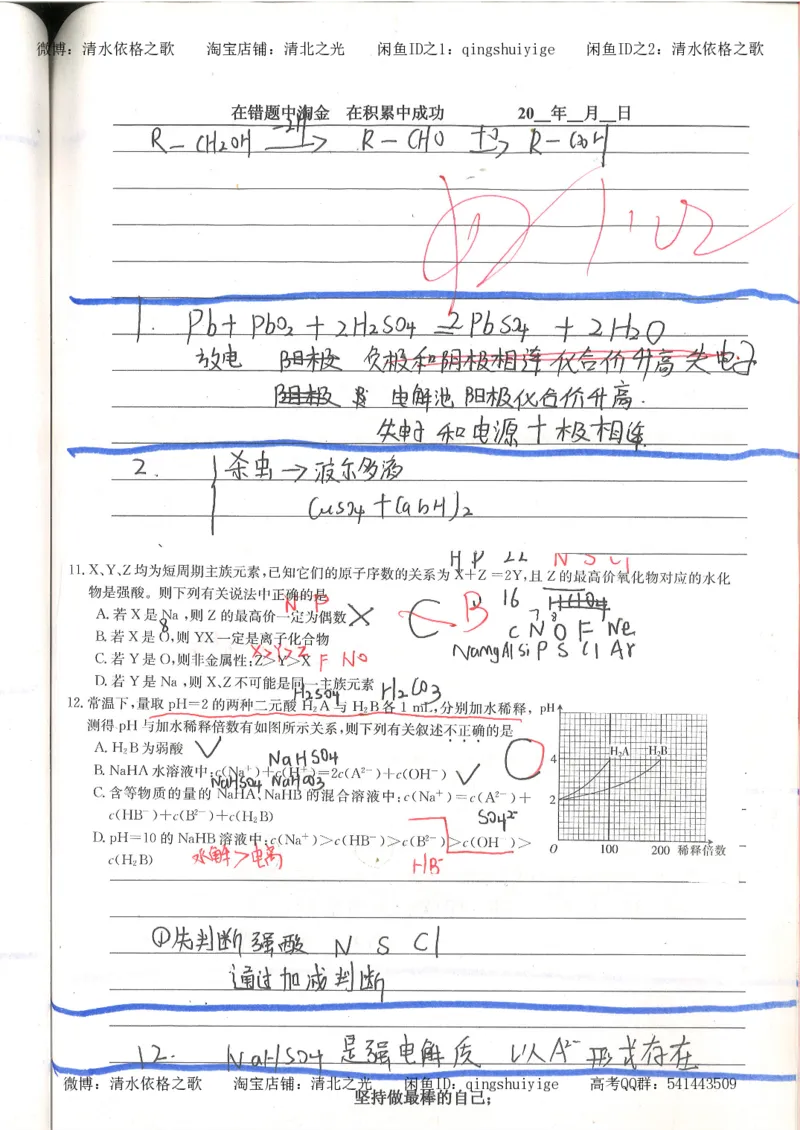 微博：清水依格之歌 淘宝店铺：清北之光 闲鱼ID之1：qingshuiyige 闲鱼ID之2：清水依格之歌
在错题中淘金 在积累中成功 20__年__月__日
R-CH2OH -2H→ R-CHO +O→ R-COOH
1. Pb+PbO2+2H2SO4=2PbSO4+2H2O
放电 阳极 负极和阴极相连 化合价升高 失电子
阳极 电解池 阳极化合价升高.
和电源十极相连
2. 杀虫→波尔多液
CuSO4+Ca(OH)2
H P 22 N S Cl
11. X、Y、Z均为短周期主族元素，已知它们的原子序数的关系为X+Z=2Y，且Z的最高价氧化物对应的水化
物是强酸。则下列有关说法中正确的是
N P B 16 HClO4
A. 若X是Na，则Z的最高价一定为偶数 × C
8 7 8
C N O F Ne
B. 若X是O，则YX一定是离子化合物
Na Mg Al Si P S Cl Ar
X>Y>Z
C. 若Y是O，则非金属性：Z>Y>X F No
D. 若Y是Na，则X、Z不可能是同一主族元素
H2SO4 H2CO3
12. 常温下，量取pH=2的两种二元酸H₂A与H₂B各1 mL，分别加水稀释，
测得pH与加水稀释倍数有如图所示关系，则下列有关叙述不正确的是
A. H₂B为弱酸 √
NaHSO4
B. NaHA水溶液中：c(Na⁺)+c(H⁺)=2c(A²⁻)+c(OH⁻) √
NaHSO4 NaHCO3
C. 含等物质的量的NaHA、NaHB的混合溶液中：c(Na⁺)=c(A²⁻)+
c(HB⁻)+c(B²⁻)+c(H₂B)
SO4²⁻
D. pH=10的NaHB溶液中：c(Na⁺)>c(HB⁻)>c(B²⁻)>c(OH⁻)>
c(H₂B)
水解>电离 HB⁻
pH
4
2
H₂A H₂B
O 100 200 稀释倍数
①先判断强酸 N S Cl
通过加减判断
12. NaHSO4是强电解质 以A²⁻形式存在
微博：清水依格之歌 淘宝店铺：清北之光 闲鱼ID：qingshuiyige 高考QQ群：541443509
坚持做最棒的自己；